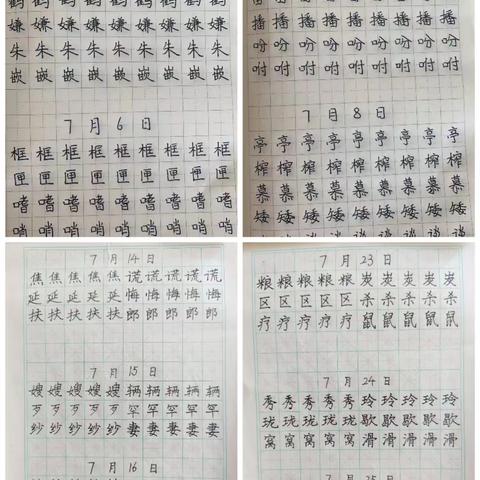 鹤鹤鹤鹤鹤鹤鹤鹤
嫌嫌嫌嫌嫌嫌嫌嫌
朱朱朱朱朱朱朱朱
嵌嵌嵌嵌嵌嵌嵌嵌
7月6日
框框框框框框框框
匣匣匣匣匣匣匣匣
嗜嗜嗜嗜嗜嗜嗜嗜
哨哨哨哨哨哨哨哨
播播播播播播播播
吩吩吩吩吩吩吩吩
咐咐咐咐咐咐咐咐
7月8日
亭亭亭亭亭亭亭亭
榨榨榨榨榨榨榨榨
慕慕慕慕慕慕慕慕
矮矮矮矮矮矮矮矮
7月14日
焦焦焦焦焦谎谎谎谎谎
延延延延延悔悔悔悔悔
扶扶扶扶扶郎郎郎郎郎
7月15日
嫂嫂嫂嫂嫂辆辆辆辆辆
歹歹歹歹歹罕罕罕罕罕
纱纱纱纱纱妻妻妻妻妻
7月16日
7月23日
粮粮粮粮粮炭炭炭炭炭
区区区区区杀杀杀杀杀
疗疗疗疗疗鼠鼠鼠鼠鼠
7月24日
秀秀秀秀秀玲玲玲玲玲
珑珑珑珑珑歇歇歇歇歇
窝窝窝窝窝滑滑滑滑滑
7月25日